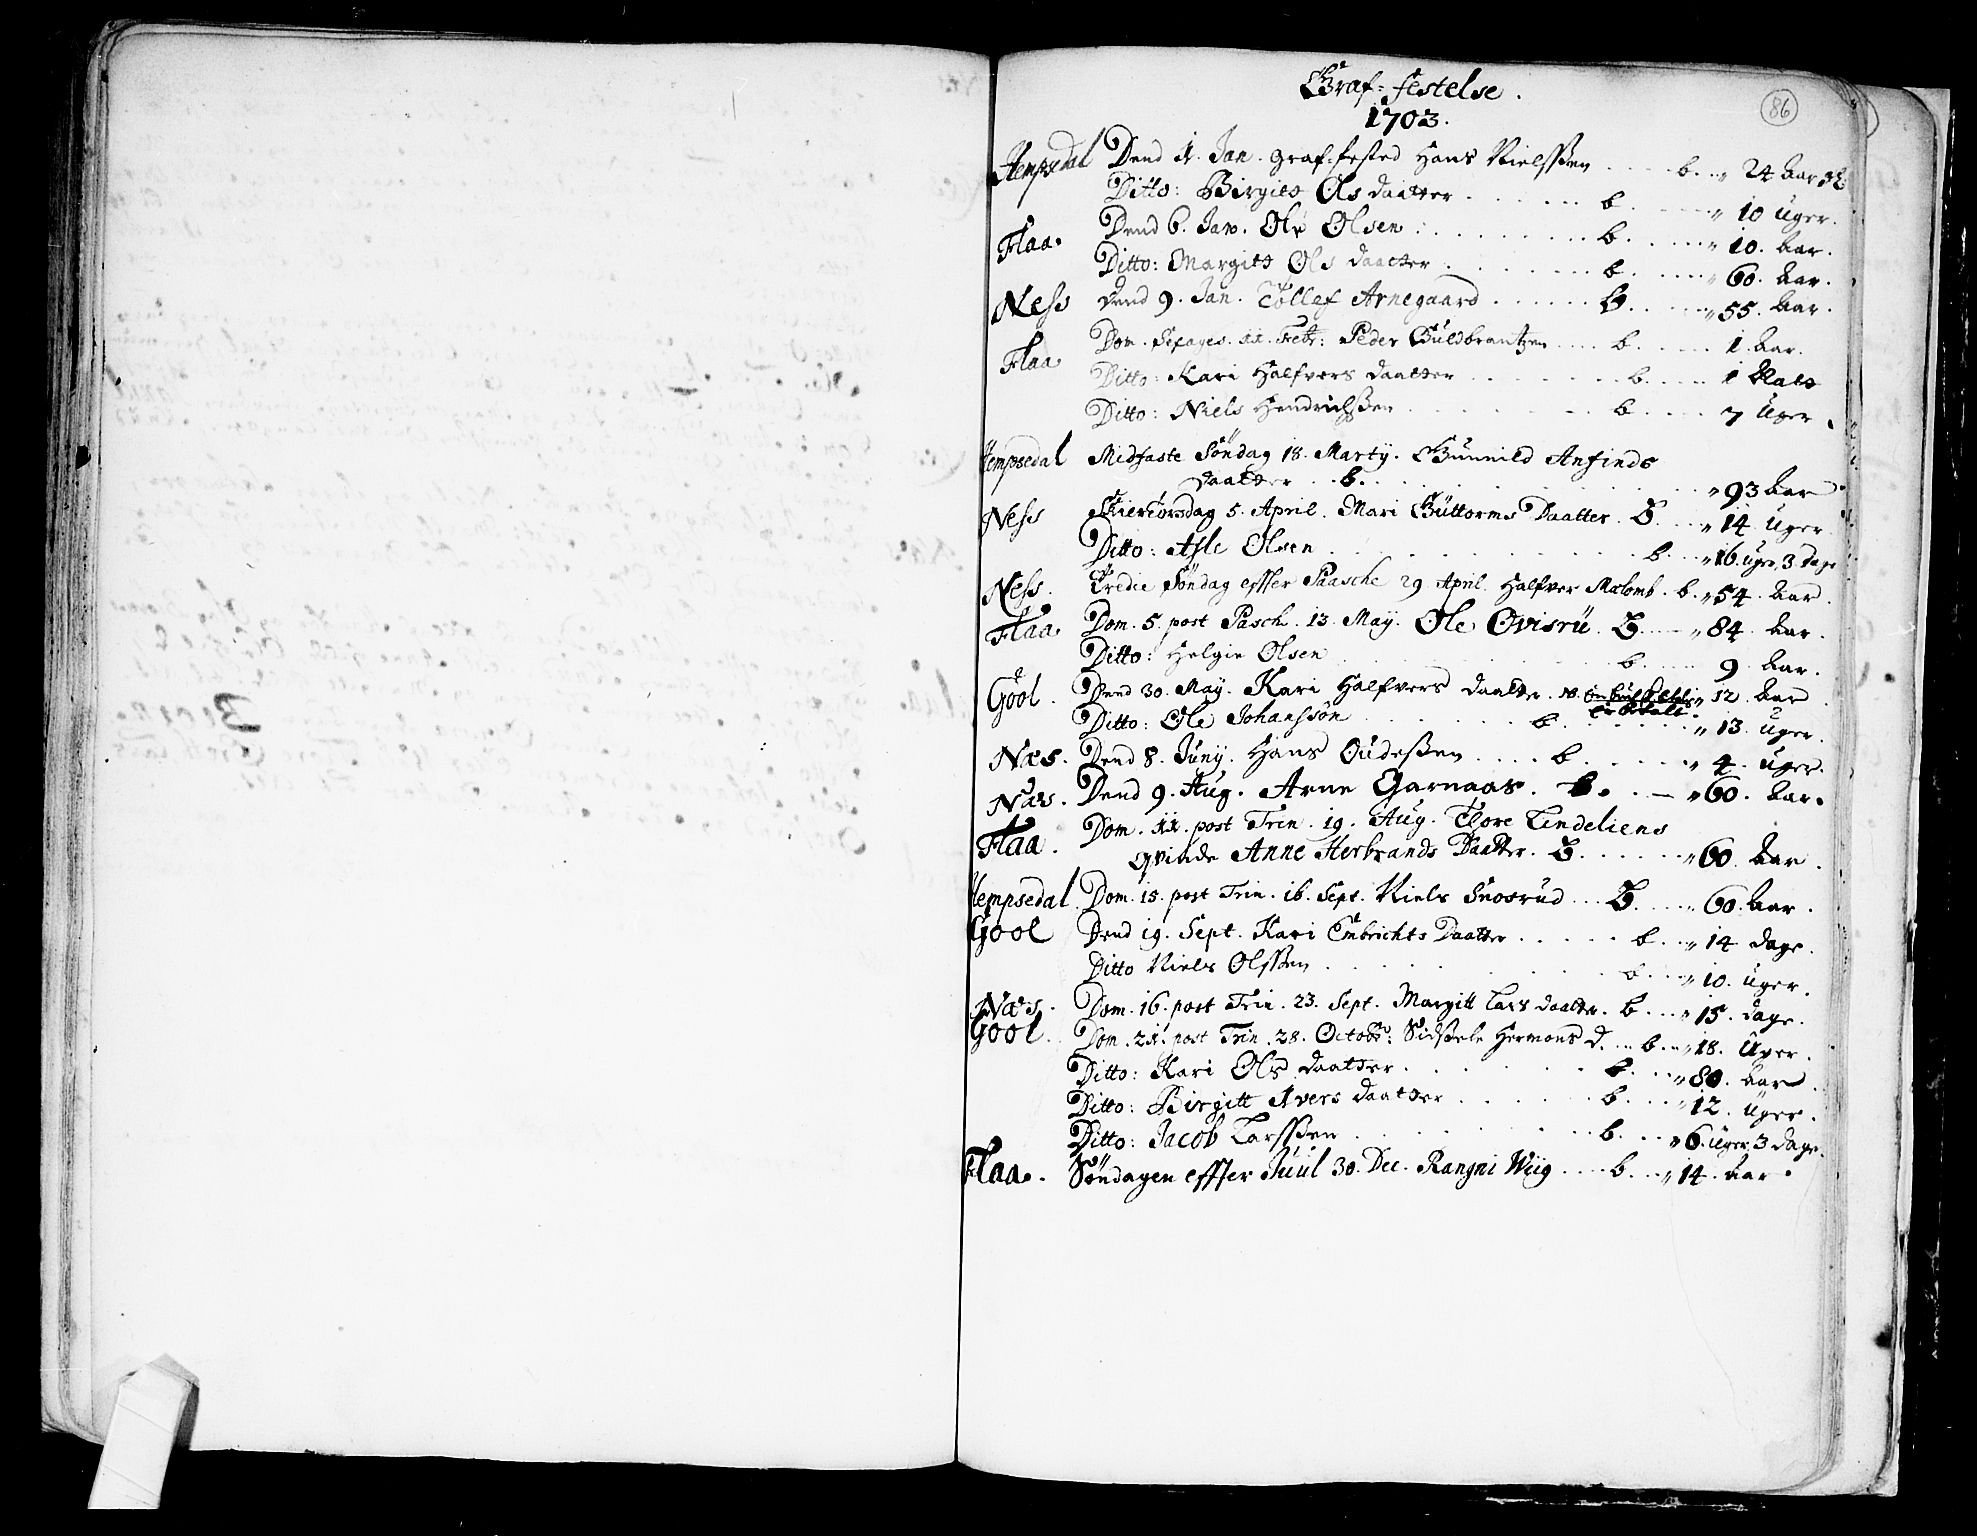 Graf-festelse.
1703.
86
Hempsedal Dend 1. Jan. graf-fested Hans Nielssen .... b. .. " 24 Aar
Ditto: Birgite Ols daatter ...... b. .... " 10 Uger.
Flaa. Dend 6. Jan. Ole Olsen ........ b. .... " 10. Aar.
Ditto: Margite Ols daatter ....... b. .... " 60. Aar.
Ness Dend 9. Jan. Tollef Arnegaard ...... b. .... " 55. Aar.
Flaa Dom. Sexages. 11. Febr: Peder Guldbrantzen .... b. .... 1. Aar.
Ditto: Kari Halfvors daatter ...... b. .... 1 Natt
Ditto: Niels Hendrichssen ...... b. .... 7 Uger.
Hempsedal Midfaste Søndag 18. Martij. Gunnild Anfinds
daatter .. b. ........ " 93 Aar
Ness Skiertorsdag 5. April. Mari Guttorms Daatter. b. ... " 14 Uger
Ditto: Asle Olsen ........ b. .. " 16. uger, 3 dage
Ness. Tredie Søndag effter Paasche 29 April. Halfvor Mælomb. b. " 54. Aar.
Flaa. Dom. 5. post Pasch. 13. May. Ole Qvisrü. b. ... " 84. Aar.
Ditto: Helgie Olsen ........ b. .... 9 Aar.
Gool. Dend 30. May. Kari Halfvors daatter. " 12. Aar
er betalt.
Ditto: Ole Johanssøn ....... b. ...... " 13. Uger.
Næs. Dend 8. Junij. Hans Oudessen .... b. ..... " 4. Uger.
Næs. Dend 9. Aug. Arne Garnaas. b. .. " 60. Aar.
Flaa. Dom. 11. post Trin. 19. Aug. Tore Lindeliens
qvinde Anne Herbrands Daatter. b. ...... " 60. Aar.
Hempsedal. Dom. 15. post Trin. 16. Sept. Niels Snosrud ... b. .... " 60. Aar.
Gool Dend 19. Sept. Kari Embrichts Daatter ..... b. .. " 14 dage.
Ditto Niels Olssen ........ b. ... " 10. Uger.
Næs. Dom. 16. post Trin. 23. Sept. Margitt Lars daatter. b. ... " 15. dage.
Gool. Dom. 21. post Trin. 28. Octobr: Sidssele Hermons d. .. b. .. " 18. Uger.
Ditto: Kari Ols daatter ...... b. ... " 80. Aar.
Ditto: Birgitt Ivers daatter ..... b. .... " 12. Uger.
Ditto: Jacob Larssen ....... b. ... " 6. Uger, 3 dage.
Flaa. Søndagen effter Juul 30. Dec. Rangni Wiig .... b. .. " 14. Aar.